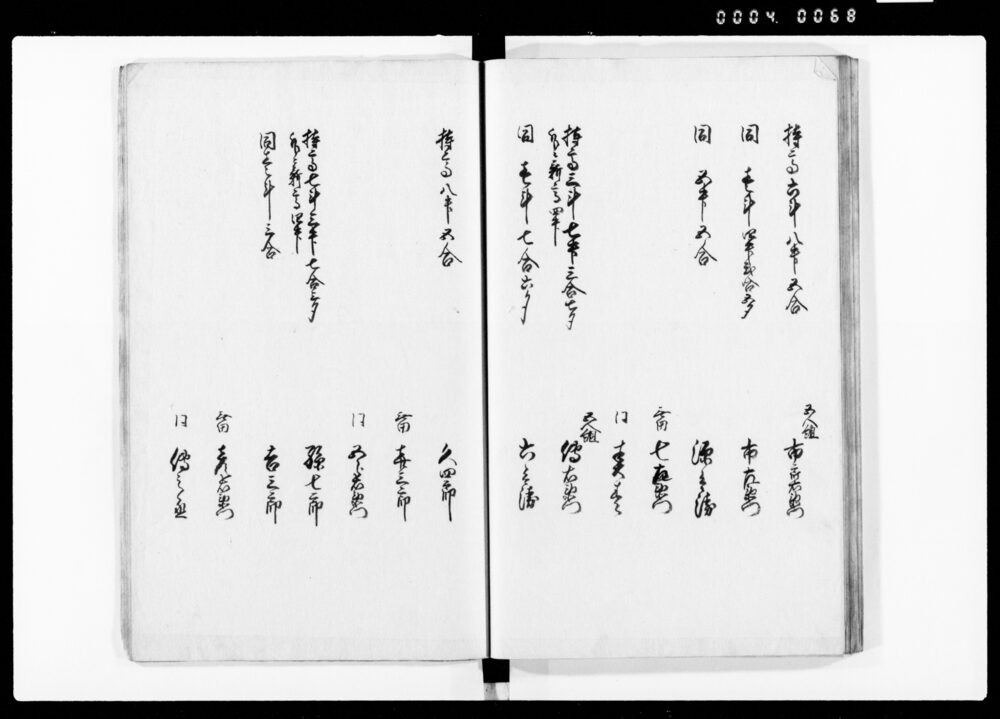 0004 0068
持高六斗八升五合
五人組 市郎右衛門
同 壱斗四升弐合五夕
市左衛門
同 五升五合
源兵衛
無田 七左衛門
同
持高三斗七升三合七夕
外ニ新高四升
五人組 傳右衛門
同 壱斗七合六夕
六兵衛
持高八升五合
久四郎
無田 喜三郎
同 五右衛門
持高七斗三升七合六夕
外ニ新高四升
孫七郎
同壱斗三合
吉三郎
無田 彦右衛門
同 傳之丞